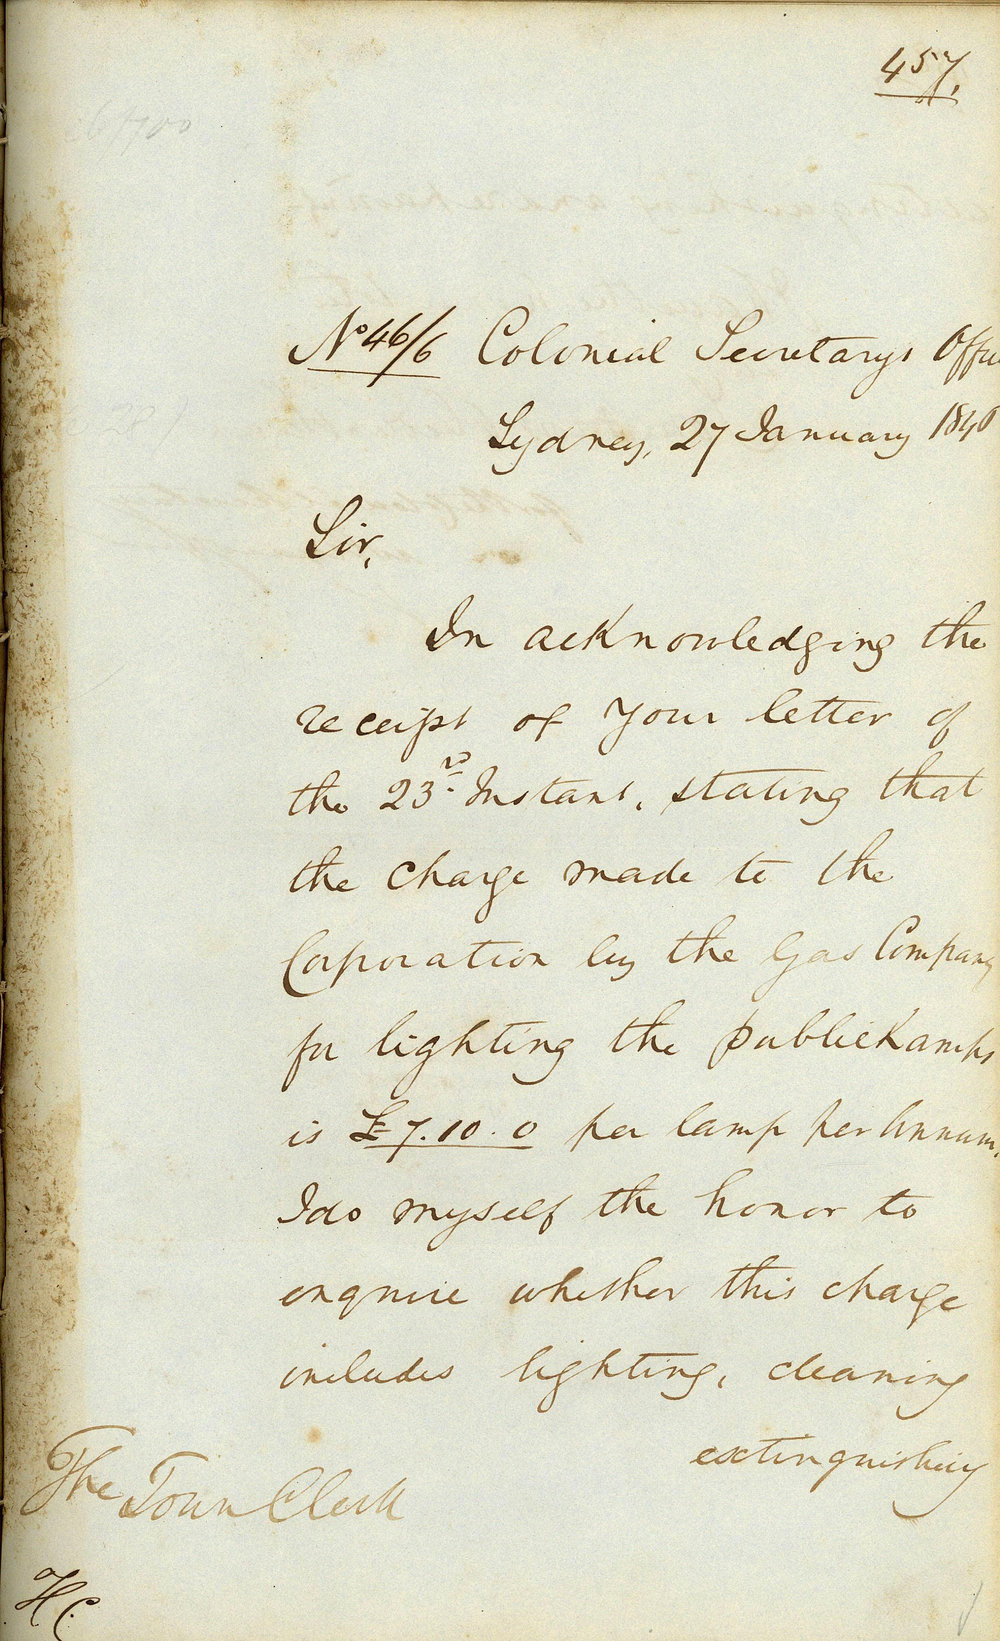 457.
No 46/6 Colonial Secretarys Office
Sydney, 27 January 1846
Sir,
In acknowledging the
receipt of your letter of
the 23rd Instant, stating that
the charge made to the
Corporation by the Gas Company
for lighting the public Lamps
is £7.10.0 per lamp per Annum,
I do myself the honor to
enquire whether this charge
includes lighting, cleaning
extinguishing
The Town Clerk
H C.